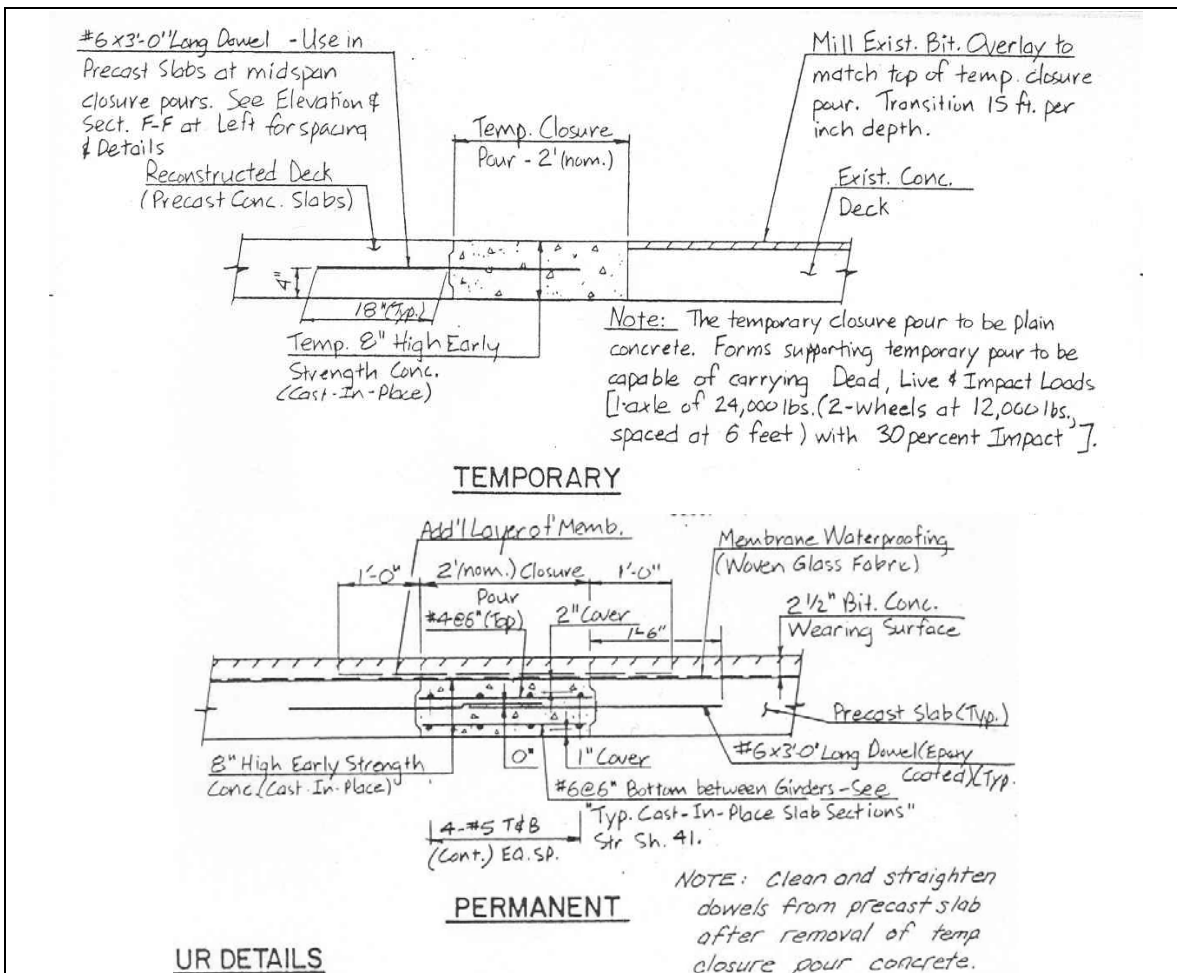 #6 x 3'-0" Long Dowel - Use in
Precast Slabs at midspan
closure pours. See Elevation &
Sect. F-F at Left for spacing
& Details
Mill Exist. Bit. Overlay to
match top of temp. closure
pour. Transition 15 ft. per
inch depth.
Temp. Closure
Pour - 2' (nom.)
Reconstructed Deck
(Precast Conc. Slabs)
Exist. Conc.
Deck
4"
18" (Typ.)
Temp. 8" High Early
Strength Conc.
(Cast-In-Place)
Note: The temporary closure pour to be plain
concrete. Forms supporting temporary pour to be
capable of carrying Dead, Live & Impact Loads
[1-axle of 24,000 lbs. (2-wheels at 12,000 lbs.,
spaced at 6 feet) with 30 percent Impact].
TEMPORARY
Add'l Layer of Memb.
Membrane Waterproofing
(Woven Glass Fabric)
1'-0"
2' (nom.) Closure
Pour
1'-0"
#4@6" (Top)
2" Cover
1'-6"
2 1/2" Bit. Conc.
Wearing Surface
Precast Slab (Typ.)
#6 x 3'-0" Long Dowel (Epoxy
Coated) (Typ.
8" High Early Strength
Conc. (Cast-In-Place)
0"
1" Cover
#6@6" Bottom between Girders - See
"Typ. Cast-In-Place Slab Sections"
Str Sh. 41.
4-#5 T&B
(Cont.) EQ. SP.
PERMANENT
NOTE: Clean and straighten
dowels from precast slab
after removal of temp
closure pour concrete.
UR DETAILS